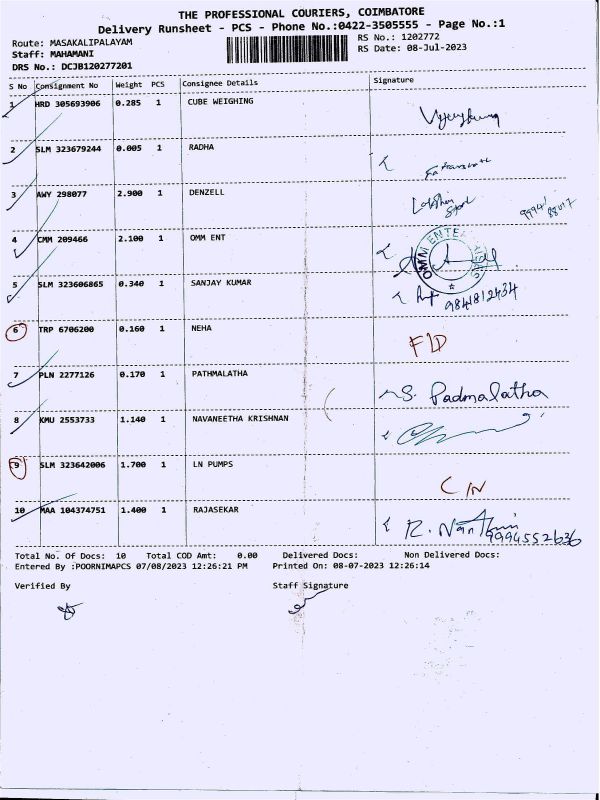 THE PROFESSIONAL COURIERS, COIMBATORE
Delivery Runsheet - PCS - Phone No.:0422-3505555 - Page No.:1
Route: MASAKALIPALAYAM
RS No.: 1202772
Staff: MAHAMANI
RS Date: 08-Jul-2023
DRS No.: DCJB120277201
S No Consignment No Weight PCS Consignee Details Signature
1 HRD 305693906 0.285 1 CUBE WEIGHING
2 SLM 323679244 0.005 1 RADHA
3 AWY 298077 2.900 1 DENZELL
4 CMM 209466 2.100 1 OMM ENT
OMM ENTE
5 SLM 323606865 0.340 1 SANJAY KUMAR
9841812434
6 TRP 6706200 0.160 1 NEHA F/D
7 PLN 2277126 0.170 1 PATHMALATHA S. Padmalatha
8 KMU 2553733 1.140 1 NAVANEETHA KRISHNAN
9 SLM 323642006 1.700 1 LN PUMPS C/N
10 MAA 104374751 1.400 1 RAJASEKAR R. Nanthini
9994552636
Total No. Of Docs: 10 Total COD Amt: 0.00 Delivered Docs: Non Delivered Docs:
Entered By :POORNIMAPCS 07/08/2023 12:26:21 PM Printed On: 08-07-2023 12:26:14
Verified By Staff Signature